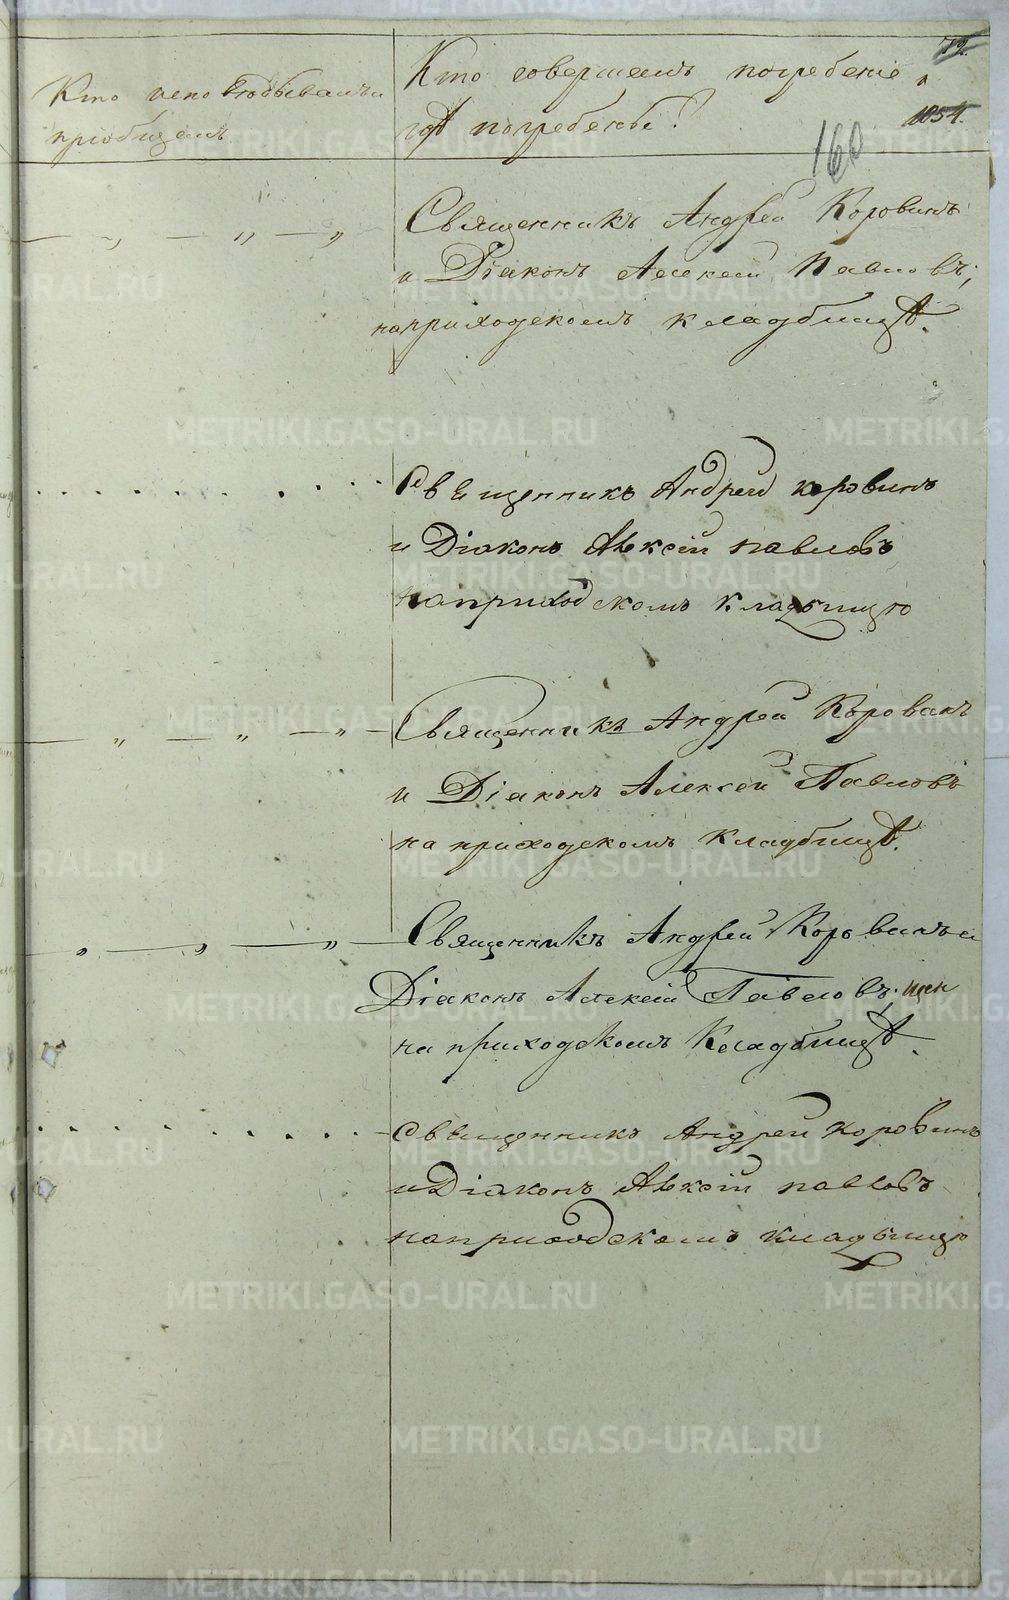 Кто исповѣдывалъ и
пріобщалъ
Кто совершалъ погребеніе и
гдѣ погребены?
160
Священникъ Андрей Коровинъ
и Діаконъ Алексѣй Павловъ;
на приходскомъ кладбищѣ.
Священникъ Андрей Коровинъ
и Діаконъ Алексѣй Павловъ
на приходскомъ кладбищѣ
Священникъ Андрей Коровинъ
и Діаконъ Алексѣй Павловъ
на приходскомъ кладбищѣ.
Священникъ Андрей Коровинъ и
Діаконъ Алексѣй Павловъ;
на приходскомъ Кладбищѣ.
Священникъ Андрей Коровинъ
и Діаконъ Алексѣй Павловъ
на приходскомъ кладбищѣ
METRIKI.GASO-URAL.RU